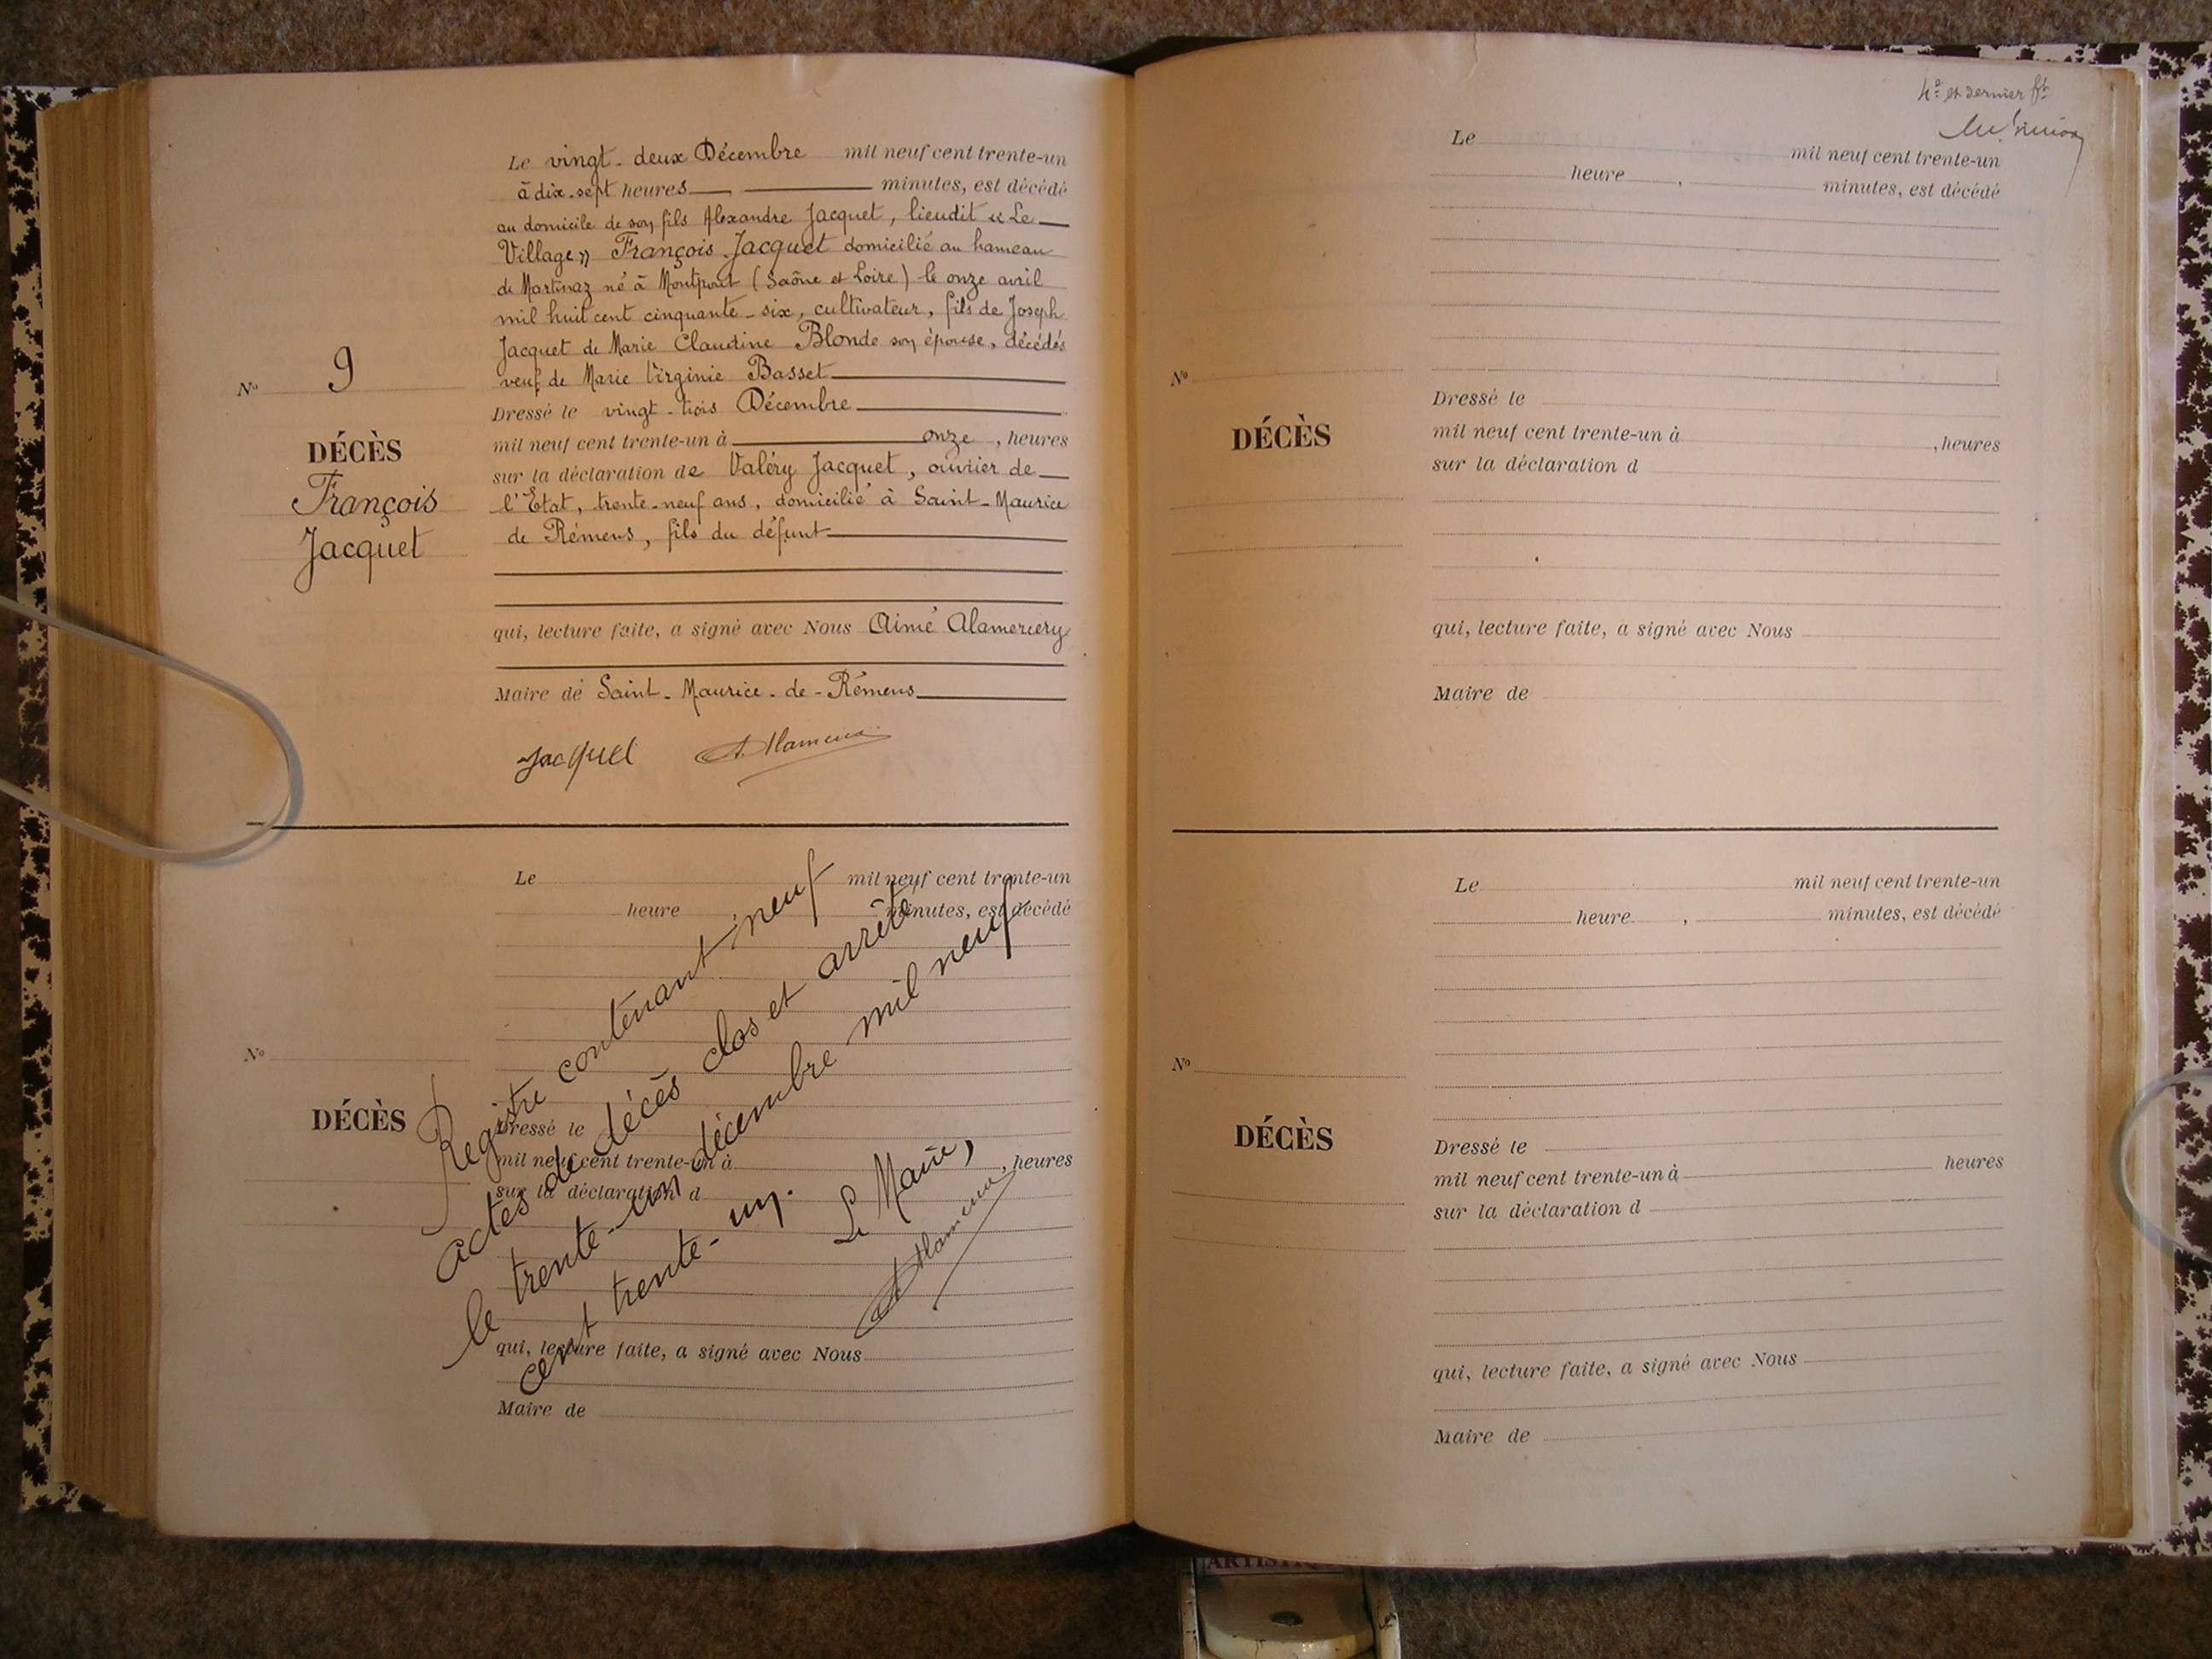 Le vingt-deux Décembre mil neuf cent trente-un
à dix-sept heures minutes, est décédé
au domicile de son fils Alexandre Jacquet, lieudit « Le
Village » François Jacquet domicilié au hameau
de Martinaz né à Montpont (Saône et Loire) le onze avril
mil huit cent cinquante-six, cultivateur, fils de Joseph
Jacquet de Marie Claudine Blonde son épouse, décédés
veuf de Marie Virginie Basset
Dressé le vingt-trois Décembre
mil neuf cent trente-un à onze, heures
sur la déclaration de Valéry Jacquet, ouvrier de
l'Etat, trente-neuf ans, domicilié à Saint-Maurice
de Rémens, fils du défunt
qui, lecture faite, a signé avec Nous Aimé Alamercery
Maire de Saint-Maurice-de-Rémens
Jacquet
No 9
DÉCÈS
François
Jacquet
Le mil neuf cent trente-un
heure minutes, est décédé
No
DÉCÈS
Dressé le
mil neuf cent trente-un à , heures
sur la déclaration d
qui, lecture faite, a signé avec Nous
Maire de
Registre contenant neuf
actes de décès clos et arrêté
le trente-un décembre mil neuf
cent trente-un.
Le Maire,
4e et dernier ft
Le mil neuf cent trente-un
heure , minutes, est décédé
No
DÉCÈS
Dressé le
mil neuf cent trente-un à , heures
sur la déclaration d
qui, lecture faite, a signé avec Nous
Maire de
Le mil neuf cent trente-un
heure , minutes, est décédé
No
DÉCÈS
Dressé le
mil neuf cent trente-un à heures
sur la déclaration d
qui, lecture faite, a signé avec Nous
Maire de